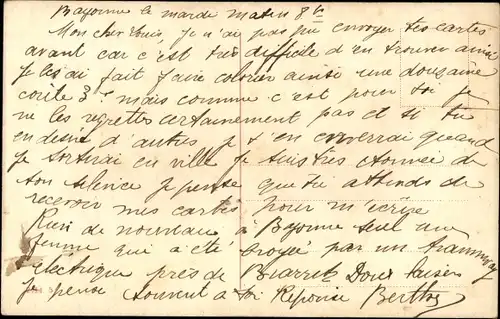 Bayonne le mardi matin 8h
Mon cher Louis je n'ai pas pu envoyer tes cartes
avant car c'est très difficile d'en trouver ainsi
je les ai fait faire colorier ainsi une douzaine
coûte 3f mais comme c'est pour toi je
ne les regrettes certainement pas et si tu
en desire d'autres je t'en enverrai quand
je sortirai en ville je suis très étonnée de
ton silence je pense que tu attends de
recevoir mes cartes pour m'écrire
Rien de nouveau à Bayonne seul une
femme qui a été broyée par un tramway
électrique près de Biarritz Doux baisers
je pense souvent à toi Réponse Berthe